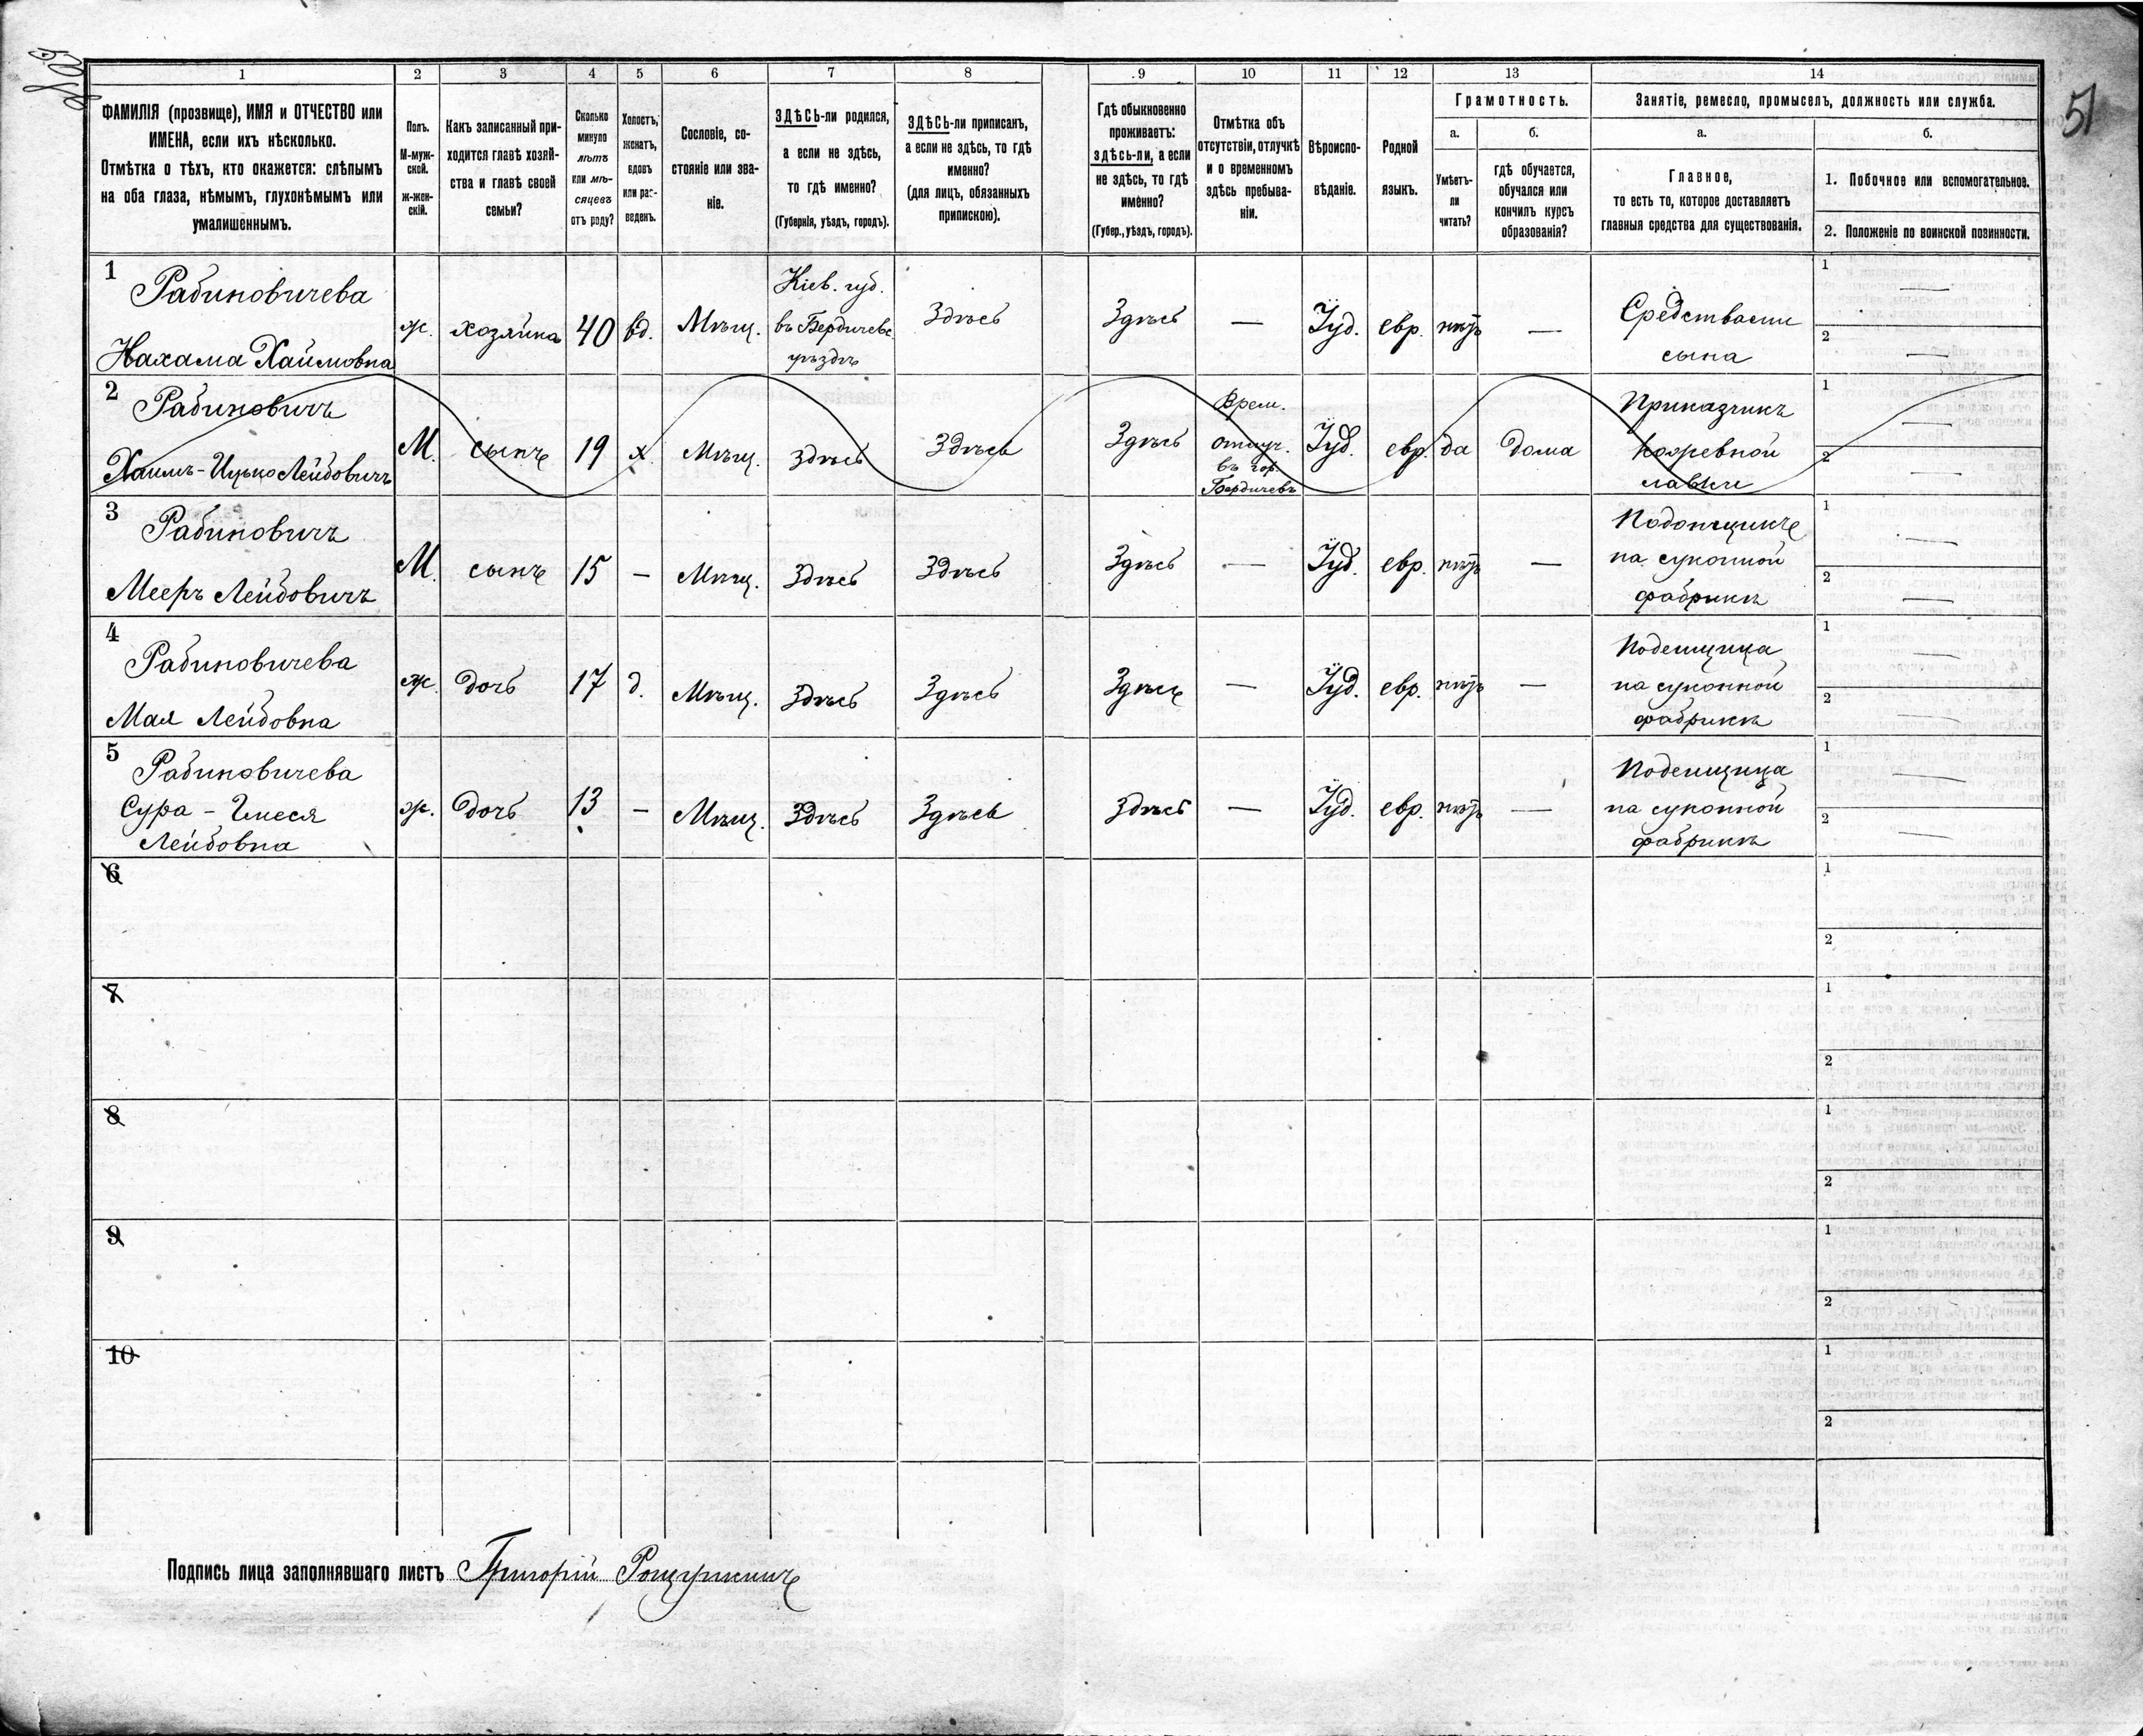 50об
51
1 2 3 4 5 6 7 8 9 10 11 12 13 14
ФАМИЛІЯ (прозвище), ИМЯ и ОТЧЕСТВО или
ИМЕНА, если ихъ нѣсколько.
Отмѣтка о тѣхъ, кто окажется: слѣпымъ
на оба глаза, нѣмымъ, глухонѣмымъ или
умалишеннымъ.
Полъ.
М-муж-
ской.
ж-жен-
скій.
Какъ записанный при-
ходится главѣ хозяй-
ства и главѣ своей
семьи?
Сколько
минуло
лѣтъ
или мѣ-
сяцевъ
отъ роду?
Холостъ,
женатъ,
вдовъ
или раз-
веденъ.
Сословіе, со-
стояніе или зва-
ніе.
ЗДѢСЬ-ли родился,
а если не здѣсь,
то гдѣ именно?
(Губернія, уѣздъ, городъ).
ЗДѢСЬ-ли приписанъ,
а если не здѣсь, то гдѣ
именно?
(для лицъ, обязанныхъ
припискою).
Гдѣ обыкновенно
проживаетъ:
здѣсь-ли, а если
не здѣсь, то гдѣ
именно?
(Губер., уѣздъ, городъ).
Отмѣтка объ
отсутствіи, отлучкѣ
и о временномъ
здѣсь пребыва-
ніи.
Вѣроиспо-
вѣданіе.
Родной
языкъ.
Грамотность.
а.
Умѣетъ-
ли
читать?
б.
гдѣ обучается,
обучался или
кончилъ курсъ
образованія?
Занятіе, ремесло, промыселъ, должность или служба.
а.
Главное,
то есть то, которое доставляетъ
главныя средства для существованія.
б.
1. Побочное или вспомогательное.
2. Положеніе по воинской повинности.
1
Рабиновичева
Нахама Хаимовна
ж.
хозяйка
40
вд.
Мѣщ.
Кіев. губ.
въ Бердичевс.
уѣздѣ
Здѣсь
Здѣсь
—
Іуд.
евр.
нѣтъ
—
Средствами
сына
1 —
2 —
2
Рабиновичъ
Хаимъ-Ицько Лейбовичъ
М.
сынъ
19
х.
Мѣщ.
Здѣсь
Здѣсь
Здѣсь
Врем.
отлуч.
въ гор.
Бердичевъ
Іуд.
евр.
да
дома
Приказчикъ
кожевной
лавки
1 —
2 —
3
Рабиновичъ
Мееръ Лейбовичъ
М.
сынъ
15
—
Мѣщ.
Здѣсь
Здѣсь
Здѣсь
—
Іуд.
евр.
нѣтъ
—
на суконной
фабрикѣ
1 —
2 —
4
Рабиновичева
Мая Лейбовна
ж.
дочь
17
д.
Мѣщ.
Здѣсь
Здѣсь
Здѣсь
—
Іуд.
евр.
нѣтъ
—
Поденщица
на суконной
фабрикѣ
1 —
2 —
5
Рабиновичева
Сура -
Лейбовна
ж.
дочь
13
—
Мѣщ.
Здѣсь
Здѣсь
Здѣсь
—
Іуд.
евр.
нѣтъ
—
Поденщица
на суконной
фабрикѣ
1 —
2 —
6
1
2
7
1
2
8
1
2
9
1
2
10
1
2
Подпись лица заполнявшаго листъ Григорій